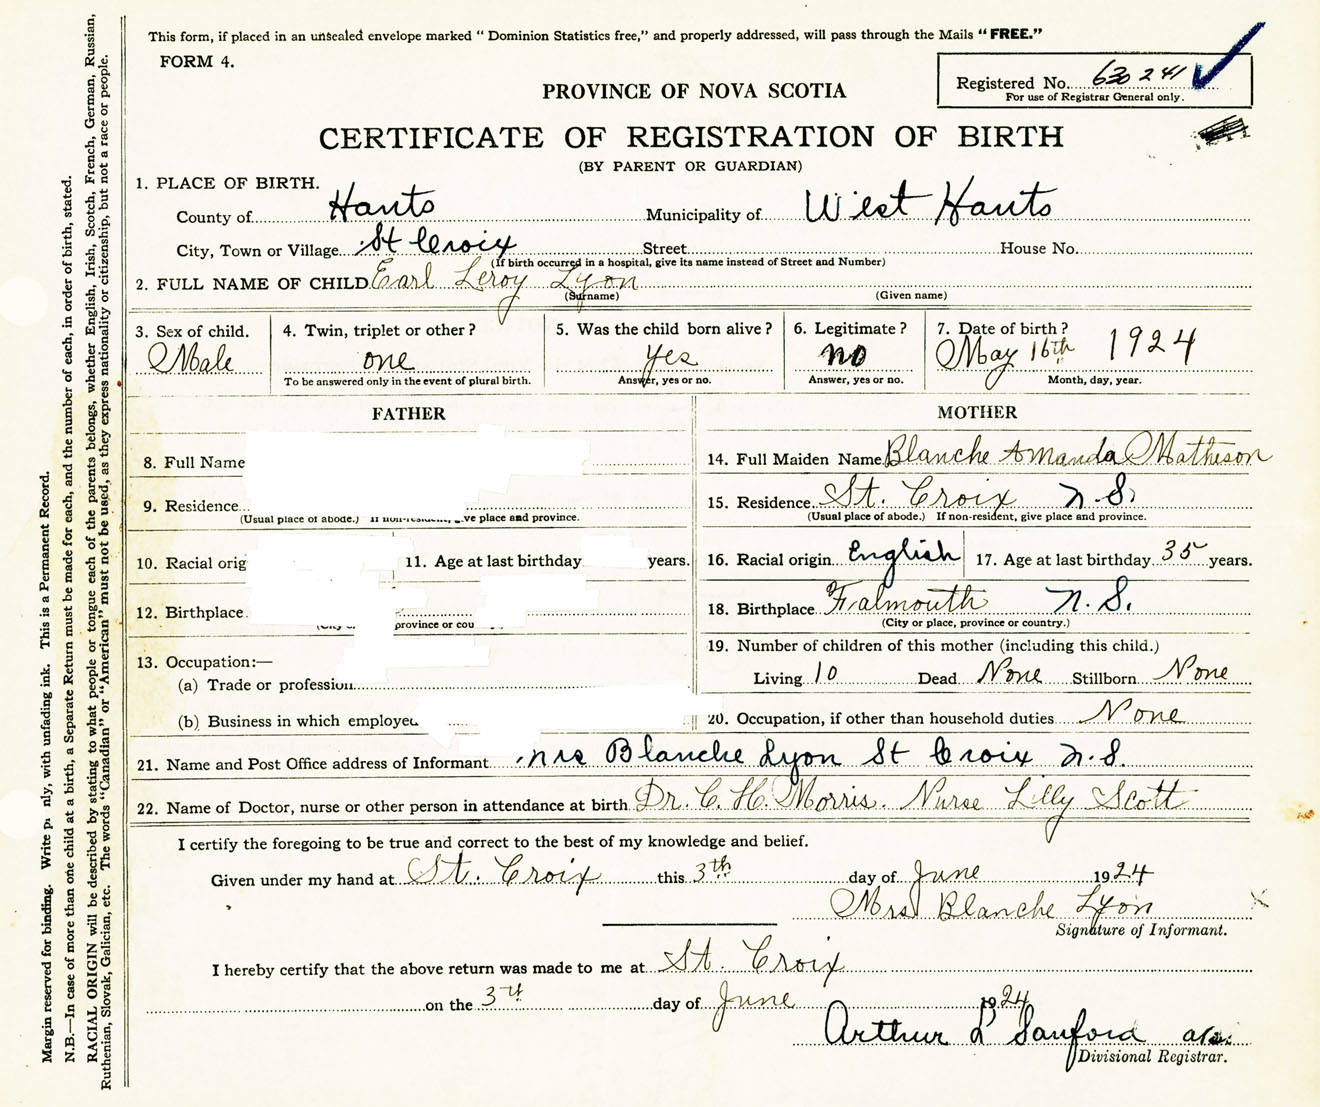 This form, if placed in an unsealed envelope marked “ Dominion Statistics free,” and properly addressed, will pass through the Mails “ FREE.”
FORM 4.
Registered No. 630241
For use of Registrar General only.
PROVINCE OF NOVA SCOTIA
CERTIFICATE OF REGISTRATION OF BIRTH
(BY PARENT OR GUARDIAN)
1. PLACE OF BIRTH.
County of Hants Municipality of West Hants
City, Town or Village St Croix Street House No.
(If birth occurred in a hospital, give its name instead of Street and Number)
2. FULL NAME OF CHILD Earl Leroy Lyon
(Surname) (Given name)
3. Sex of child. 4. Twin, triplet or other ? 5. Was the child born alive ? 6. Legitimate ? 7. Date of birth ?
Male one yes no May 16th 1924
To be answered only in the event of plural birth. Answer, yes or no. Answer, yes or no. Month, day, year.
FATHER
8. Full Name
9. Residence
(Usual place of abode.) If non-resident, give place and province.
10. Racial orig 11. Age at last birthday years.
12. Birthplace
province or cou
13. Occupation:—
(a) Trade or profession
(b) Business in which employed
MOTHER
14. Full Maiden Name Blanche Amanda Matheson
15. Residence St. Croix N.S.
(Usual place of abode.) If non-resident, give place and province.
16. Racial origin English 17. Age at last birthday 35 years.
18. Birthplace Falmouth N.S.
(City or place, province or country.)
19. Number of children of this mother (including this child.)
Living 10 Dead None Stillborn None
20. Occupation, if other than household duties None
21. Name and Post Office address of Informant Mrs Blanche Lyon St Croix N.S.
22. Name of Doctor, nurse or other person in attendance at birth Dr. C. H. Morris. Nurse Lilly Scott
I certify the foregoing to be true and correct to the best of my knowledge and belief.
Given under my hand at St. Croix this 3th day of June 1924
Mrs Blanche Lyon
Signature of Informant.
I hereby certify that the above return was made to me at St. Croix
on the 3th day of June 1924
Arthur L Sanford
Divisional Registrar.
Margin reserved for binding. Write p nly, with unfading ink. This is a Permanent Record.
N.B.—In case of more than one child at a birth, a Separate Return must be made for each, and the number of each, in order of birth, stated.
RACIAL ORIGIN will be described by stating to what people or tongue each of the parents belongs, whether English, Irish, Scotch, French, German, Russian,
Ruthenian, Slovak, Galician, etc. The words “Canadian” or “American” must not be used, as they express nationality or citizenship, but not a race or people.